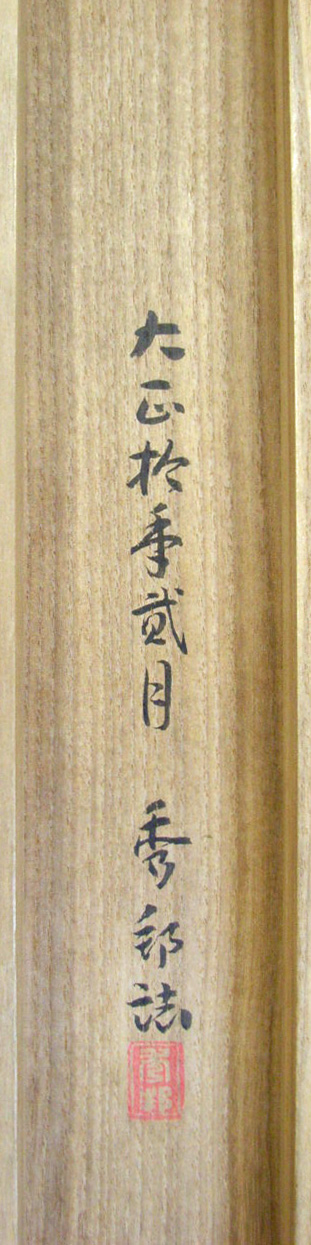 大正拾年貳月　秀邨誌